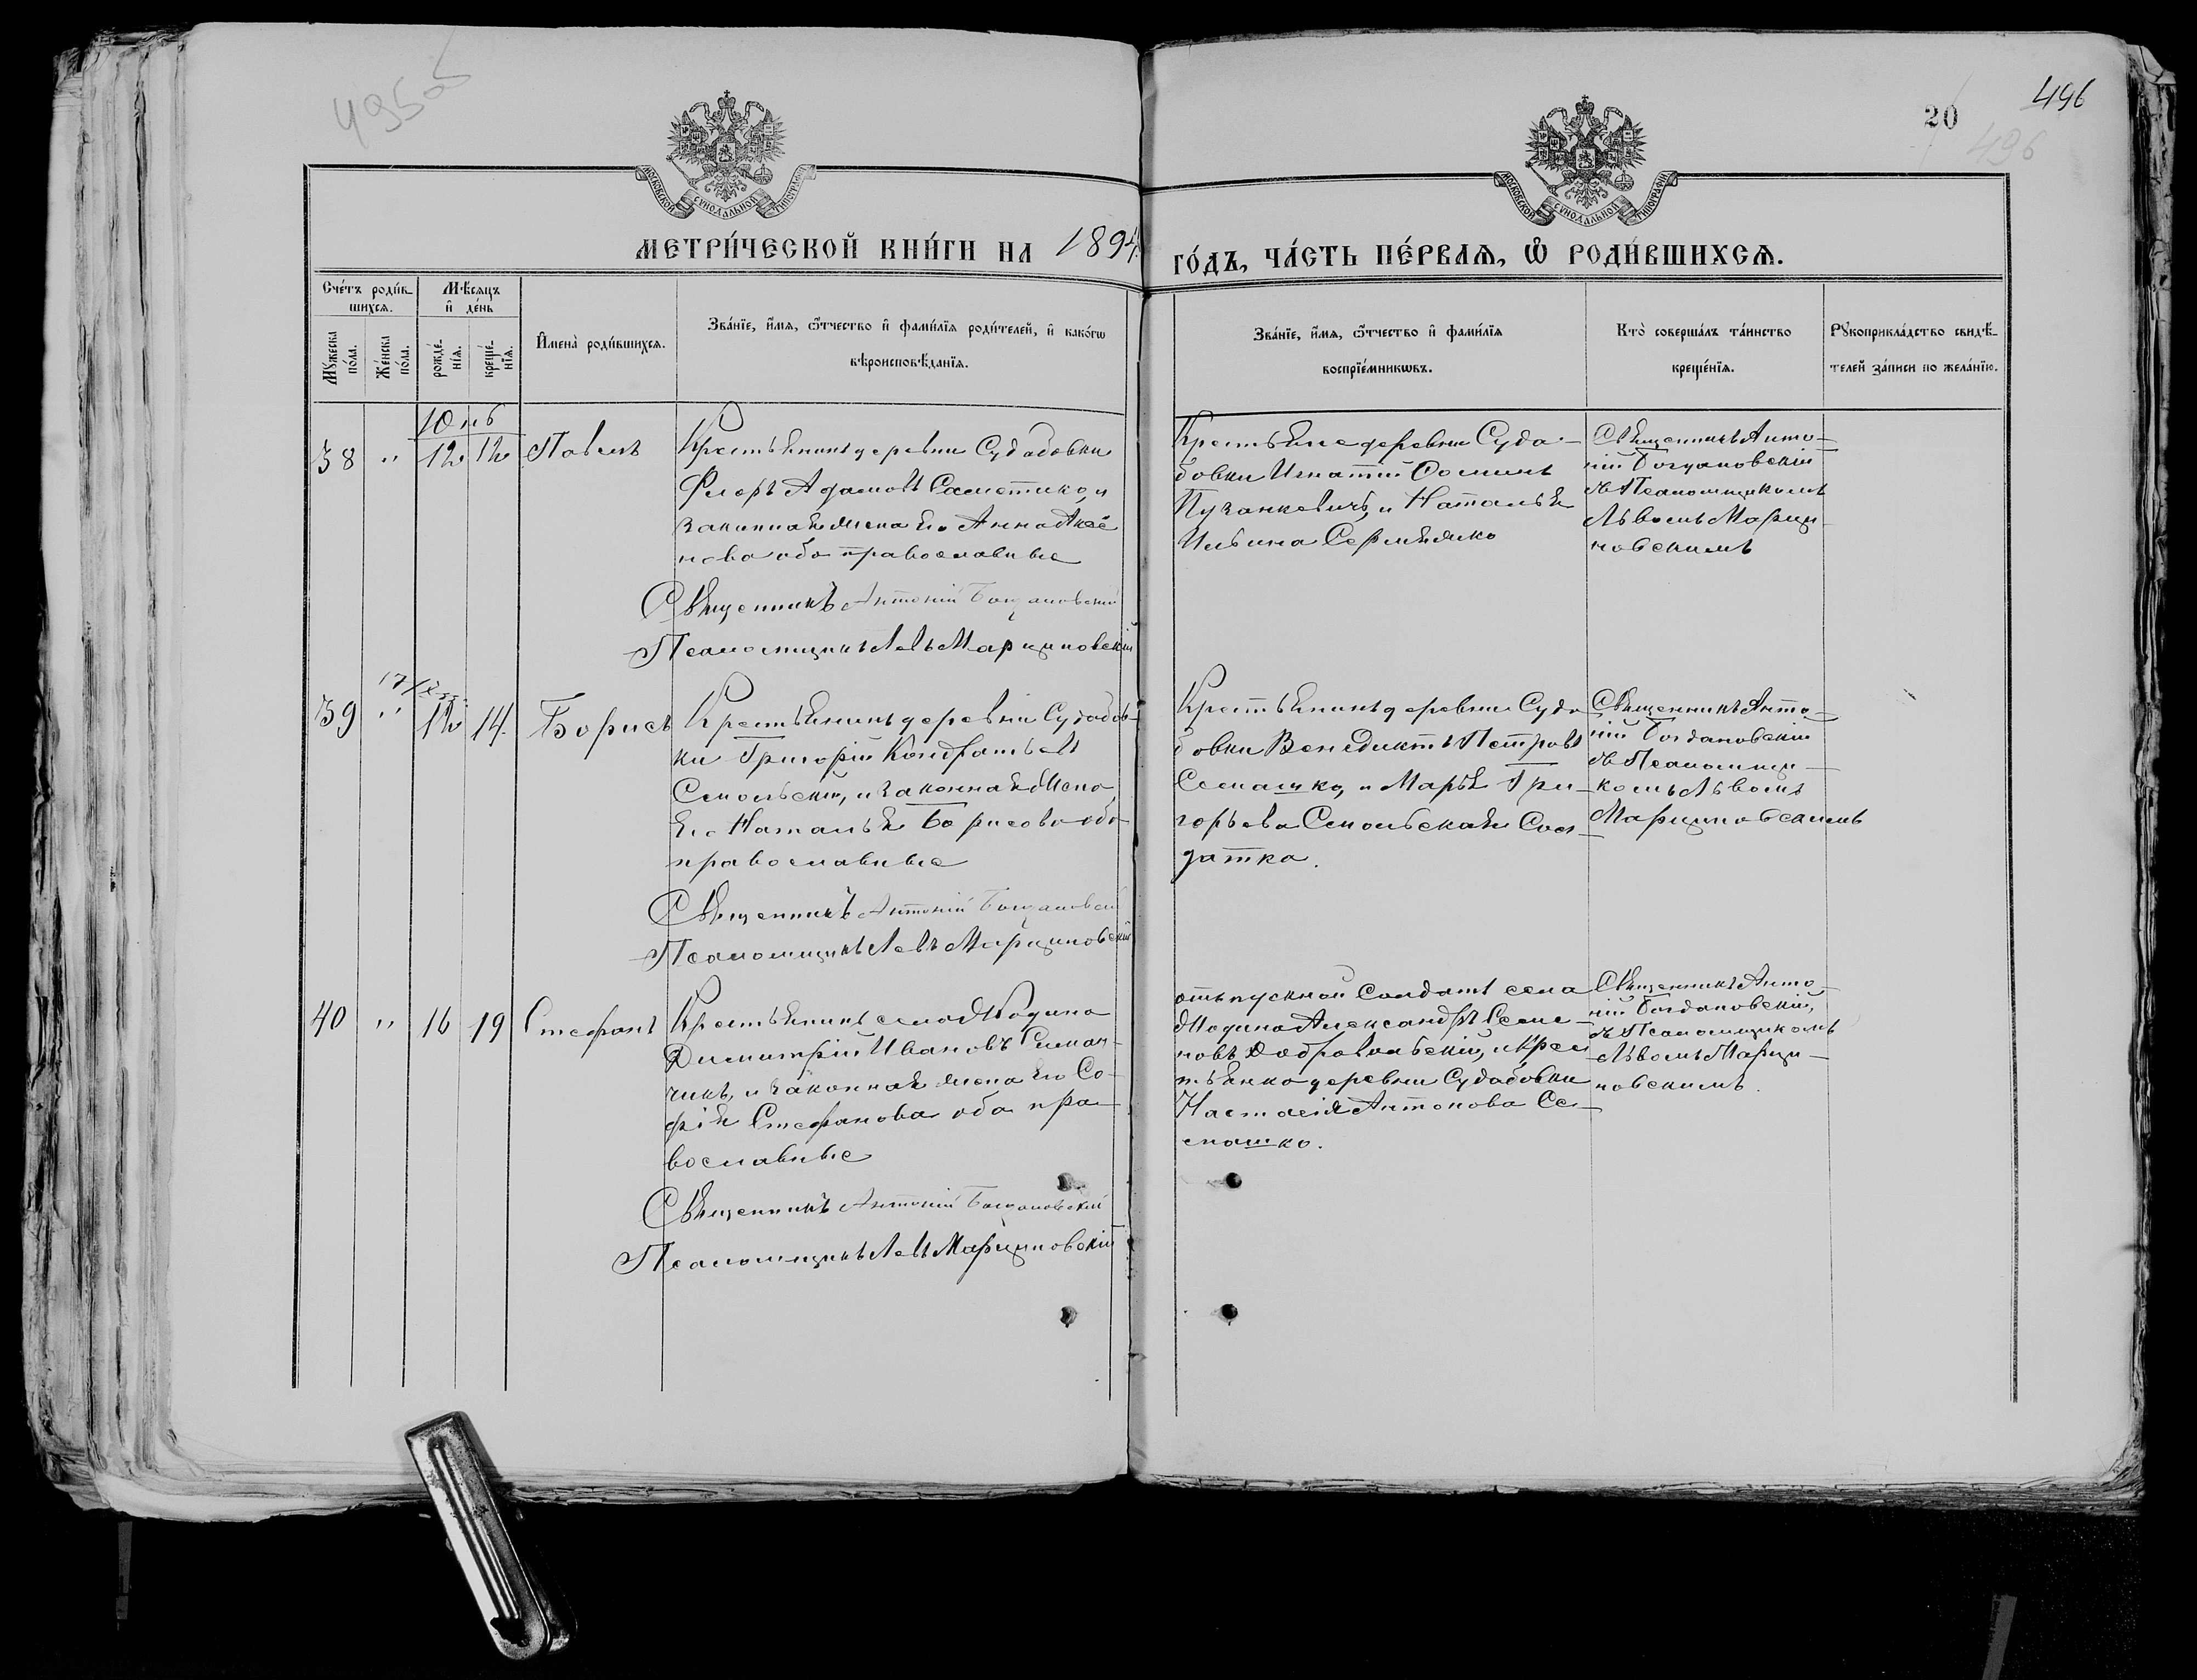 495об
20
496
496
МОСКОВСКОЙ СУНОДАЛЬНОЙ ТИПОГРАФІИ
МОСКОВСКОЙ СУНОДАЛЬНОЙ ТИПОГРАФІИ
МЕТРИ́ЧЕСКОЙ КНИ́ГИ НА 1894 ГО́ДЪ, ЧА́СТЬ ПЕ́РВАѦ, Ѽ РОДИ́ВШИХСѦ.
Сче́тъ роди́в-
шихсѧ.
Мꙋ́жеска по́ла.
Же́нска по́ла.
Мѣ́сѧцъ
и҆ де́нь
рожде́-нїѧ.
креще́-нїѧ.
И҆мена̀ роди́вшихсѧ.
Зва́нїе, и҆́мѧ, ѻ҆́тчество и҆ фами́лїѧ роди́телей, и҆ како́гѡ
вѣроисповѣ́данїѧ.
Зва́нїе, и҆́мѧ, ѻ҆́тчество и҆ фами́лїѧ
воспрїе́мникѡвъ.
Кто̀ соверша́лъ та́инство
креще́нїѧ.
Рꙋкоприкла́дство свидѣ́-
телей за́писи по жела́нїю.
Юль
38 " 12 12 Павелъ
Крестьянинъ деревни Судобовки
Флоръ Адамовъ Саметико, и
законная жена его Анна Аксе
нова оба православные
Священникъ Антоній Богдановскій
Псаломщикъ Левъ Марциновскій
Крестьяне деревни Судо-
бовки Игнатій Ѳоминъ
Пузанкевичъ, и Наталья
Ильина Сермяжко
Священникъ Анто-
ній Богдановскій
съ Псаломщикомъ
Львомъ Марци-
новскимъ
39 " 12 14. Борисъ
Крестьянинъ деревни Судобов-
ки Григорій Кондратьевъ
Смольскій, и законная жена
его Наталья Борисова оба
православные
Священникъ Антоній Богдановскій
Псаломщикъ Левъ Марциновскій
Крестьянинъ деревни Судо
бовки Венедиктъ Петровъ
Семашко, и Марья Гри-
горьева Смольская Сол-
датка.
Священникъ Анто-
ній Богдановскій
съ Псаломщи-
комъ Львомъ
Марциновскимъ
40 " 16 19 Стефанъ
Крестьянинъ села Жодина
Димитрій Ивановъ Симан-
чикъ, и законная жена его Со-
фія Стефанова оба пра-
вославные
Священникъ Антоній Богдановскій
Псаломщикъ Левъ Марциновскій
отпускной Солдатъ села
Жодина Александръ Семе-
новъ Добровольскій, и Крес
тьянка деревни Судобовки
Настасія Антонова Се-
машко.
Священникъ Анто
ній Богдановскій,
съ Псаломщикомъ
Львомъ Марци-
новскимъ.